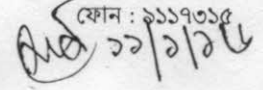 ফোন : ৯১১৭৩১৫
১১/১/১৫